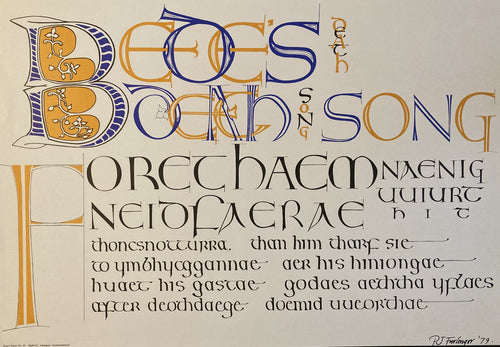 BEDE'S DEATH
DEATH SONG SONG
FORETHAEM NAENIG
UUIURT
NEIDFAERAE HIT
thoncsnotturra, than him tharf sie
to ymbhycggannae aer his hiniongae
huaet his gastae godaes aeththa yflaes
aefter deothdaege doemid uueorthae
'79